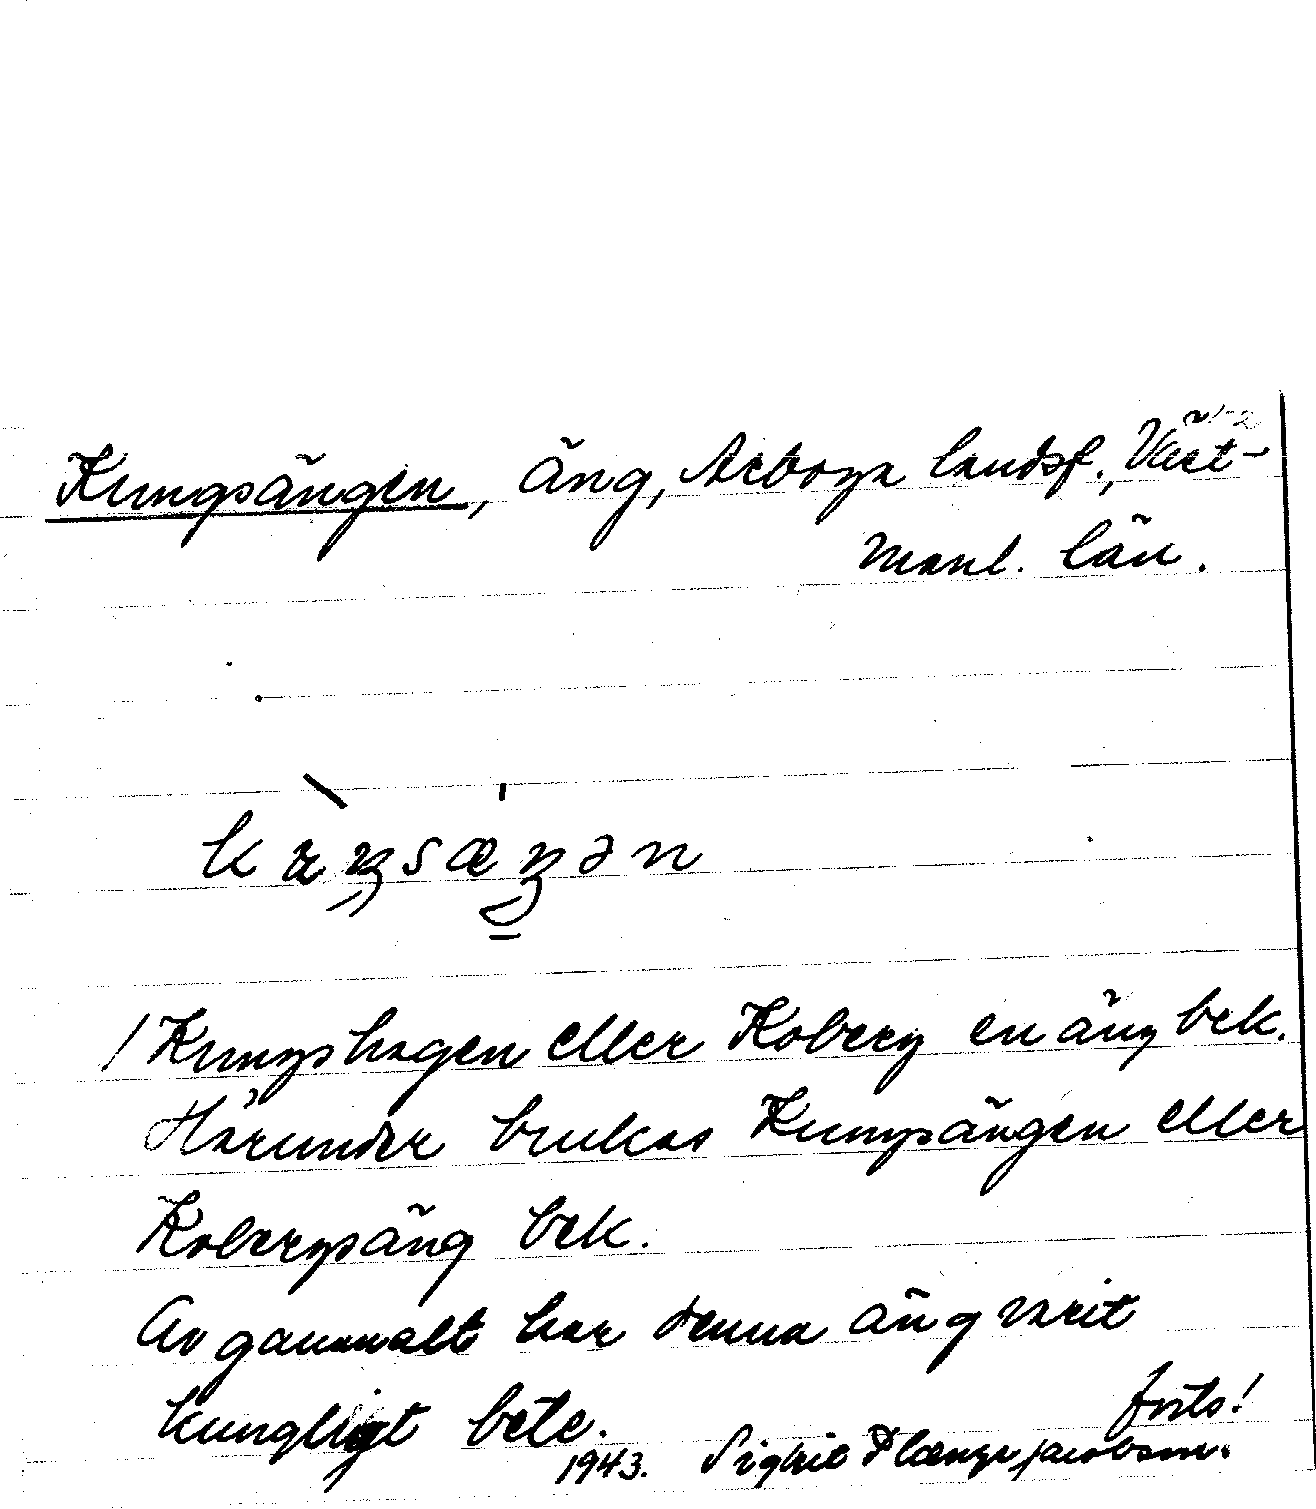 Kungsängen, äng, Arboga landsf.,Väst-
manl. län.
/Kungshagen eller Koberg en äng bek.
Härunder brukas Kungsängen eller
Kobergsäng bek.
Av gammalt har denna äng varit
kungligt bete.
forts!
1943. Sigrid Jacobson.